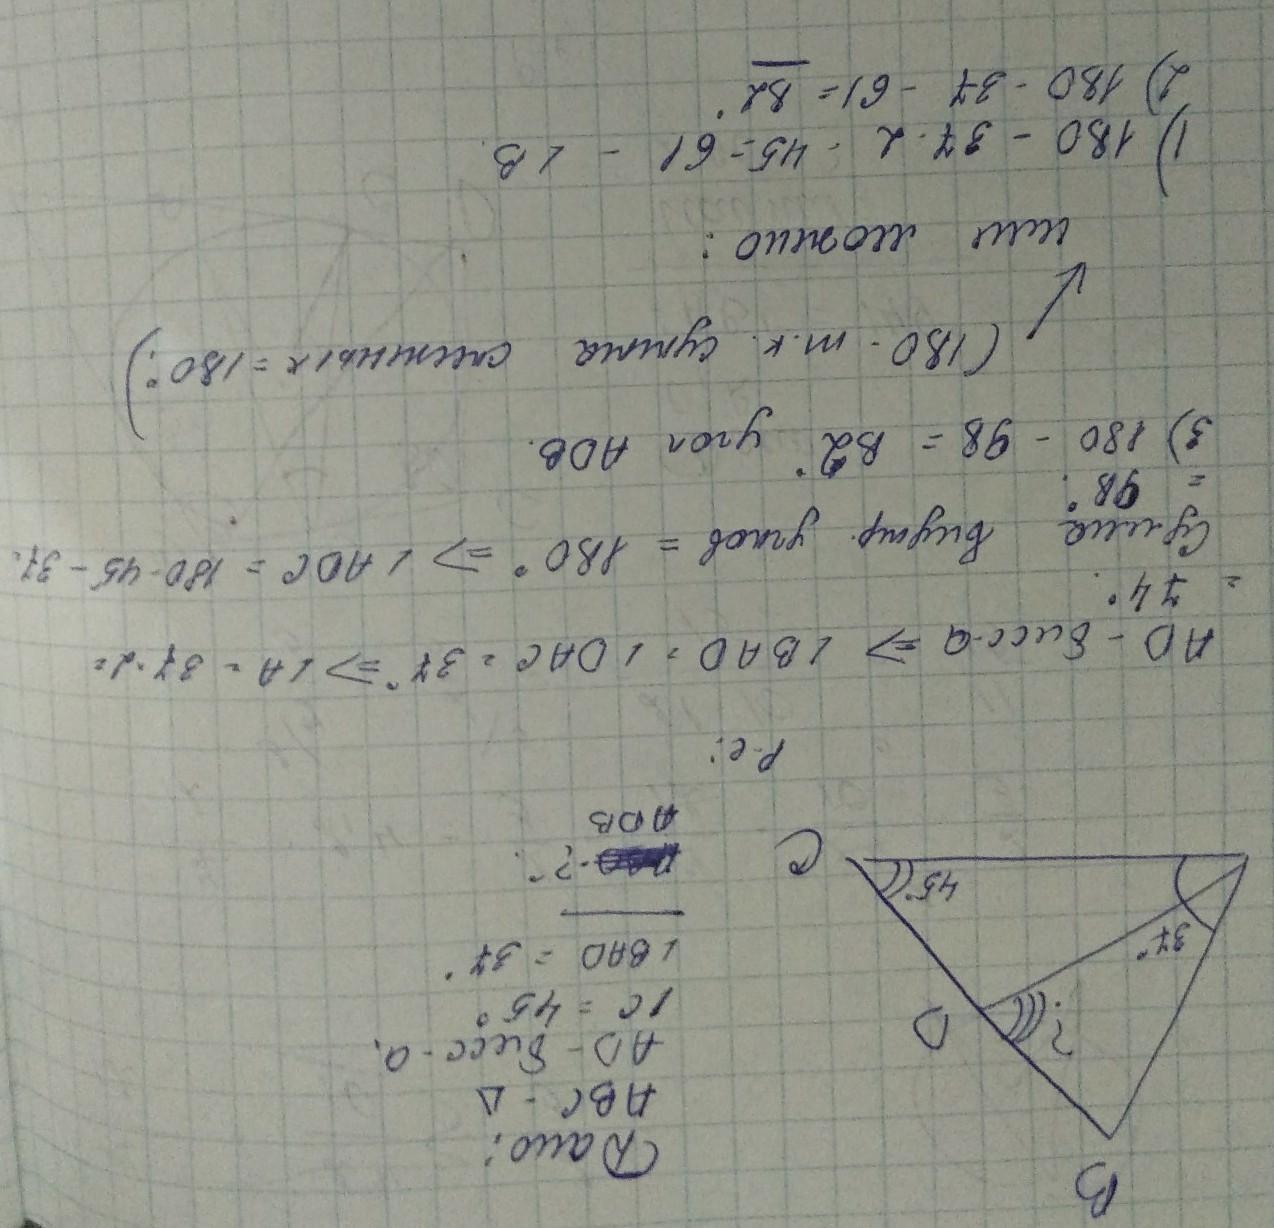 B
Дано:
ABC - Δ
AD - бисс-а,
∠C = 45°
∠BAD = 37°
ADB
- ?
D
?
37°
45°
C
Р-е:
AD - бисс-а => ∠BAD = ∠DAC = 37° => ∠A = 37·2=
= 74°.
Сумма внутр. углов = 180° => ∠ADC = 180-45-37=
= 98°.
3) 180 - 98 = 82° угол ADB.
(180 - т.к. сумма смежных = 180°.)
или можно:
1) 180 - 37·2 - 45 = 61 - ∠B.
2) 180 - 37 - 61 = 82°